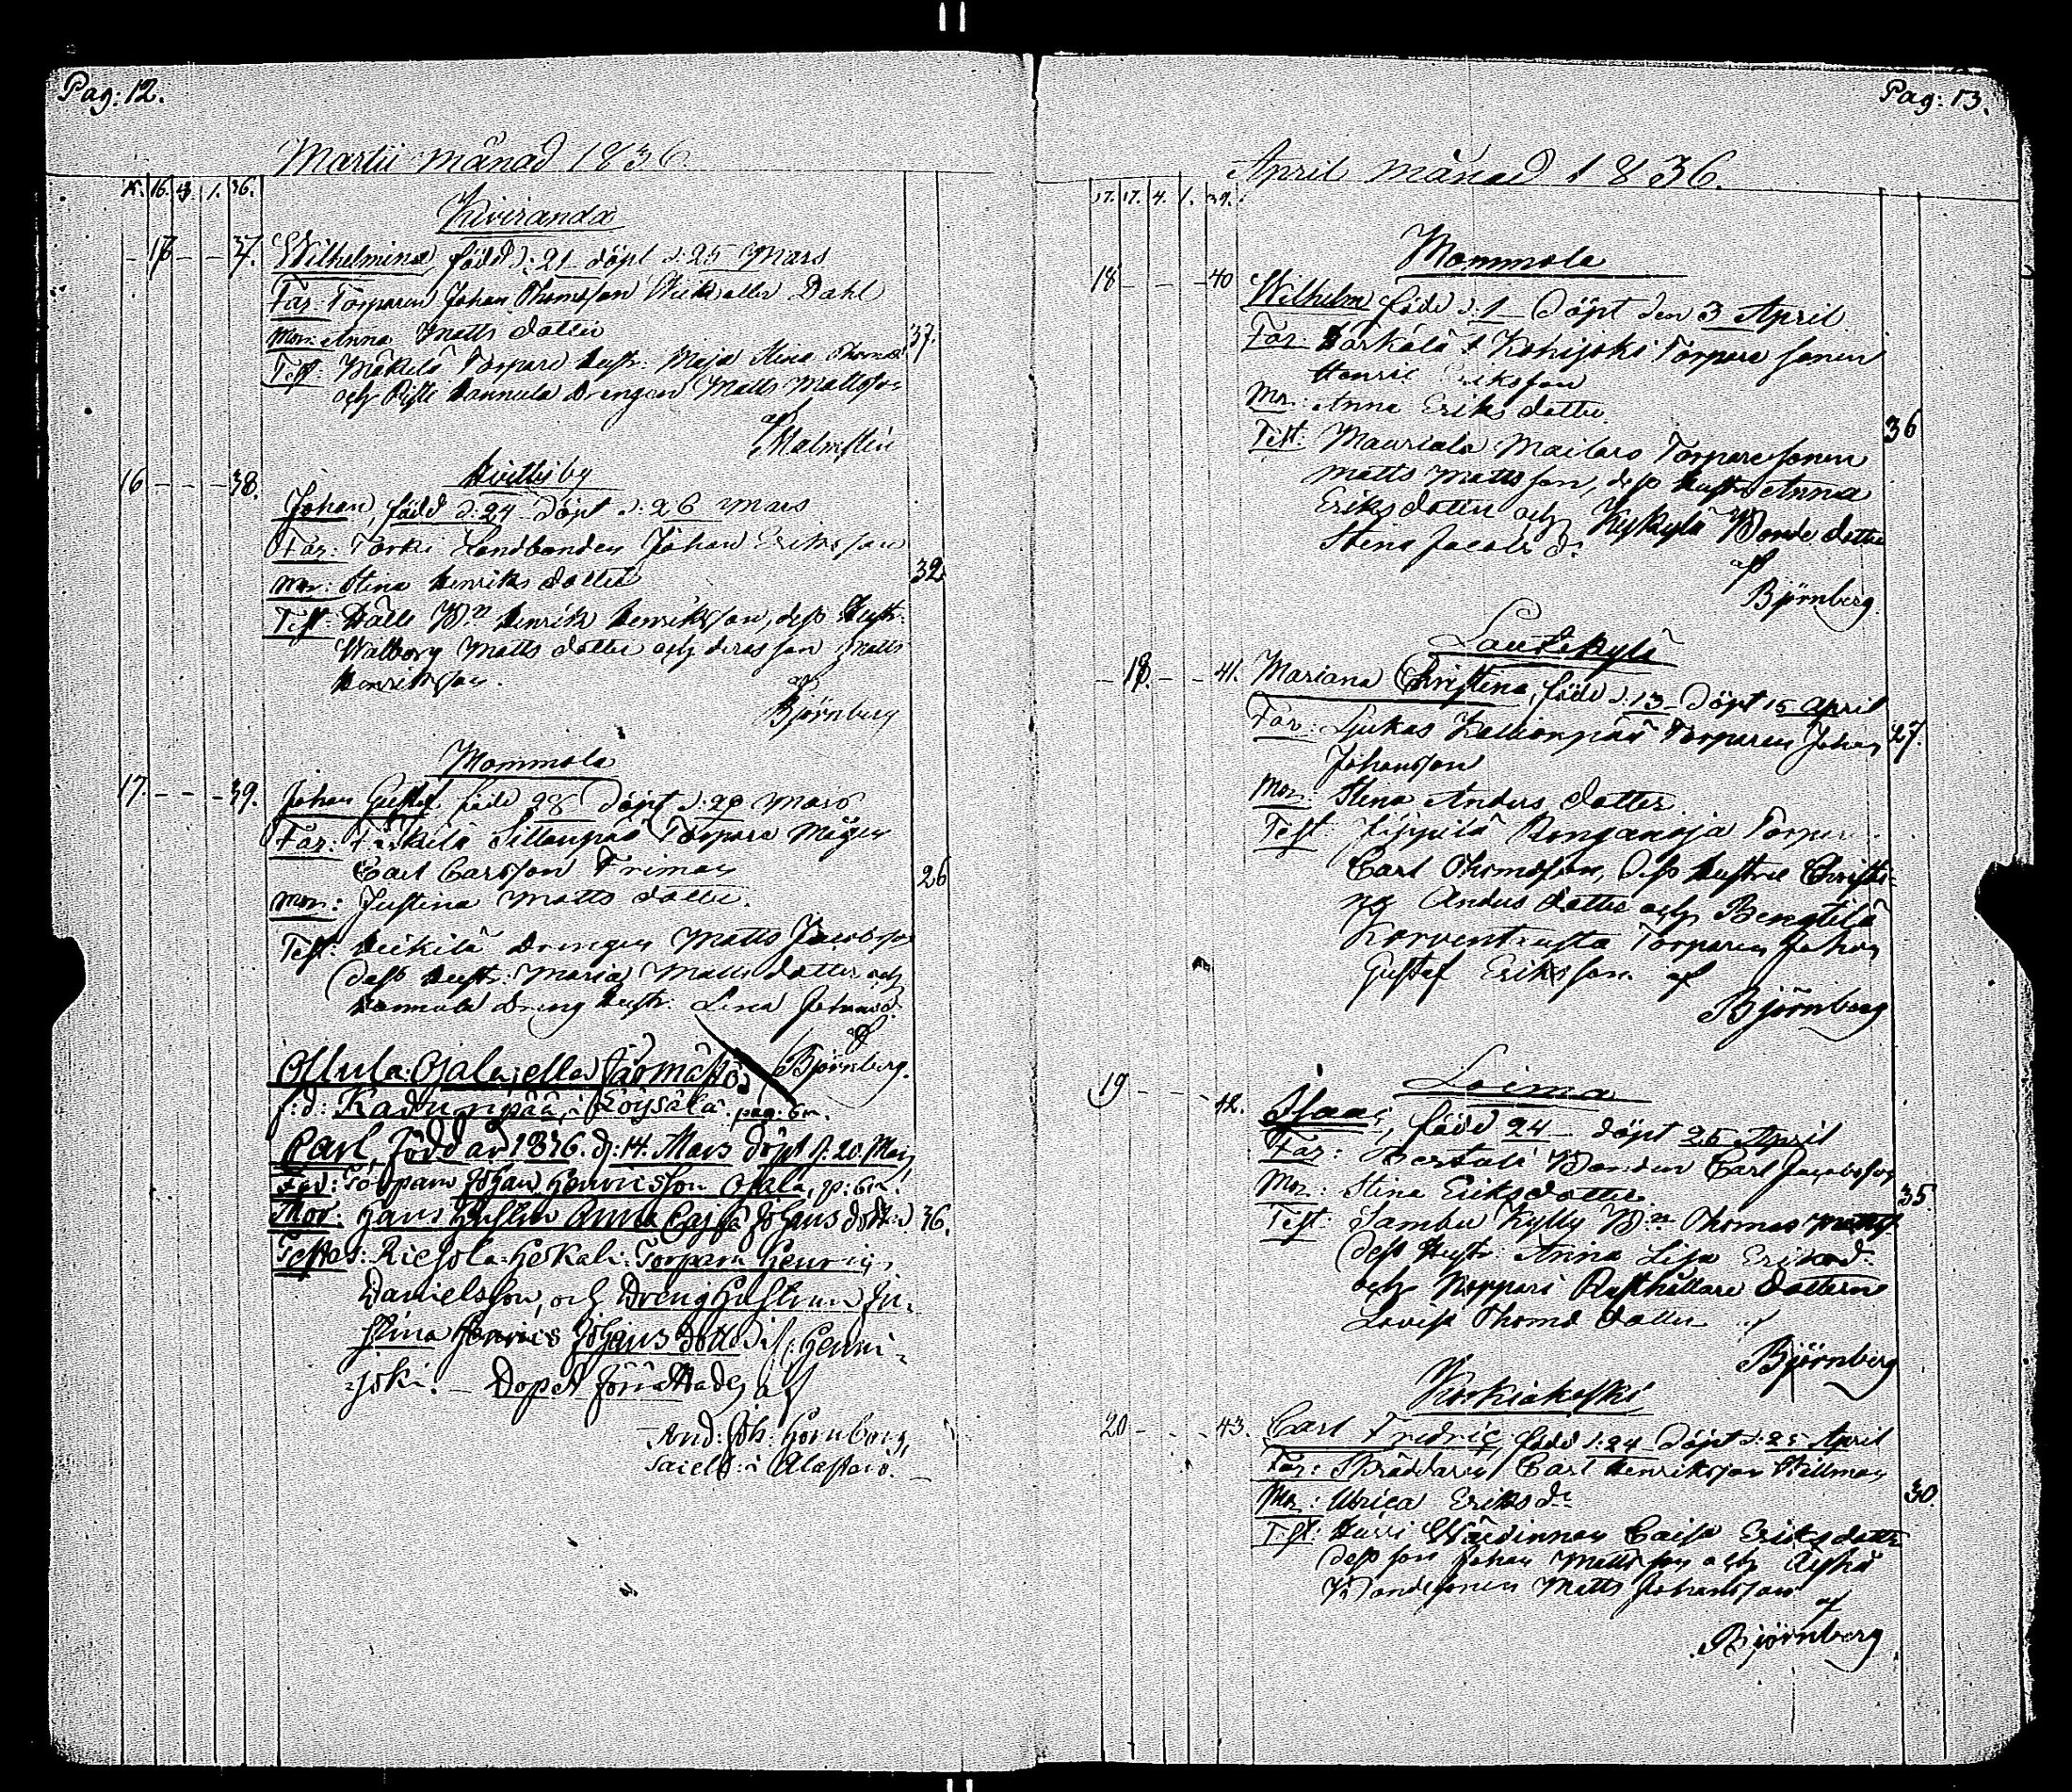 Pag: 12.
Martii månad 1836
15. 16. 3. 1. 36.
Kiviranda
- 17 - - 37. Wilhelmina, född d: 21 döpt d: 25 Mars
Far: Torparen Johan Thomsson eller Dahl
Mor: Anna Matts dotter 37.
Test: Mäkilä Torpare hustr: Maja Stina Thomasd
och Nannula Drengen Matts Mattsson
af
Malmsten
Hvittisby
16 - - - 38. Johan, född d: 24 döpt d: 26 Mars
Far: Torki Landbonden Johan Eriksson
Mor: Stina Henriks dotter 32.
Test: Bn Henrik Henriksson, dess Hustr:
Walborg Matts dotter och deras son Matts
Henriksson.
af
Björnberg
Mommola
17. - - - 39. Johan Gustaf född 28 döpt d: 29 Mars
Far: Sillanpää Torpare Mågen
Carl Carlsson Friman 26
Mor: Justina Matts dotter.
Test: Heikilä Drengen Matts Jacobsson
dess hustr: Maria Matts dotter och
Nannula Dreng hustr: Lena Johansd.
af
Björnberg.
Ollula: Ojala, eller
f: d: i Löysälä pag: 6
Carl, född år 1836. d: 14. Mars döpt d. 20. Mars
Fad: Torparn Johan Henricsson Ojala, p: 6
Mod: Hans Hustru Anna Cajsa Johans dotter 36.
Testes: Riesola Torparn Henric
Danielsson, och Dreng Hustrun Ju-
stina Johans dotter if: Henni-
joki. - Dopet förrättades af
And: Joh: Hornborg,
Sacell: i Alastaro.
Pag: 13.
April månad 1836.
17. 17. 4. 1. 39.
Mommola
18 - - - 40 Wilhelm född d: 1 Döpt den 3 April
Far: Kohijoki Torpare sonen
Henric Eriksson
Mor: Anna Eriks dotter 36
Test: Mauriala Torpare sonen
Matts Mattsson, dess hustru Anna
Eriks dotter och Kykylä Bonde dotter
Stina Jacobs dr
af
Björnberg.
Lautzkylä
- 18. - - 41. Mariana Christina, född d: 13 Döpt 15 April
Far: Ljukas Kallionpää Torparen Johan 27.
Johansson
Mor: Stina Anders dotter
Test: Torpare
Carl Thomasson, dess hustru Christi-
na Anders dotter och Bengtilä
Korventausta Torparen Johan
Gustaf Eriksson. af
Björnberg
Loima
19 - - - 42. Isaac, född 24 döpt 25 April
Far: Bertali Bonden Carl Jacobsson
Mor: Stina Eriksdotter 35.
Test: Sambu Kylly Bn Thomas Mattss.
dess Hustr: Anna Lisa Eriksd.
och Noppari Rusthållare dottern
Lovisa Thoms dotter af
Björnberg
Korkiakoski
20 - - - 43. Carl Fredric född d: 24 Döpt d: 25 April
Far: Skräddaren Carl Henriksson Willman
Mor: Ulrica Eriks dr 30.
Test: Hurri Värdinnan Caisa Eriks dotter
dess son Johan Mattsson och
Bondesonen Matts Johansson
af
Björnberg